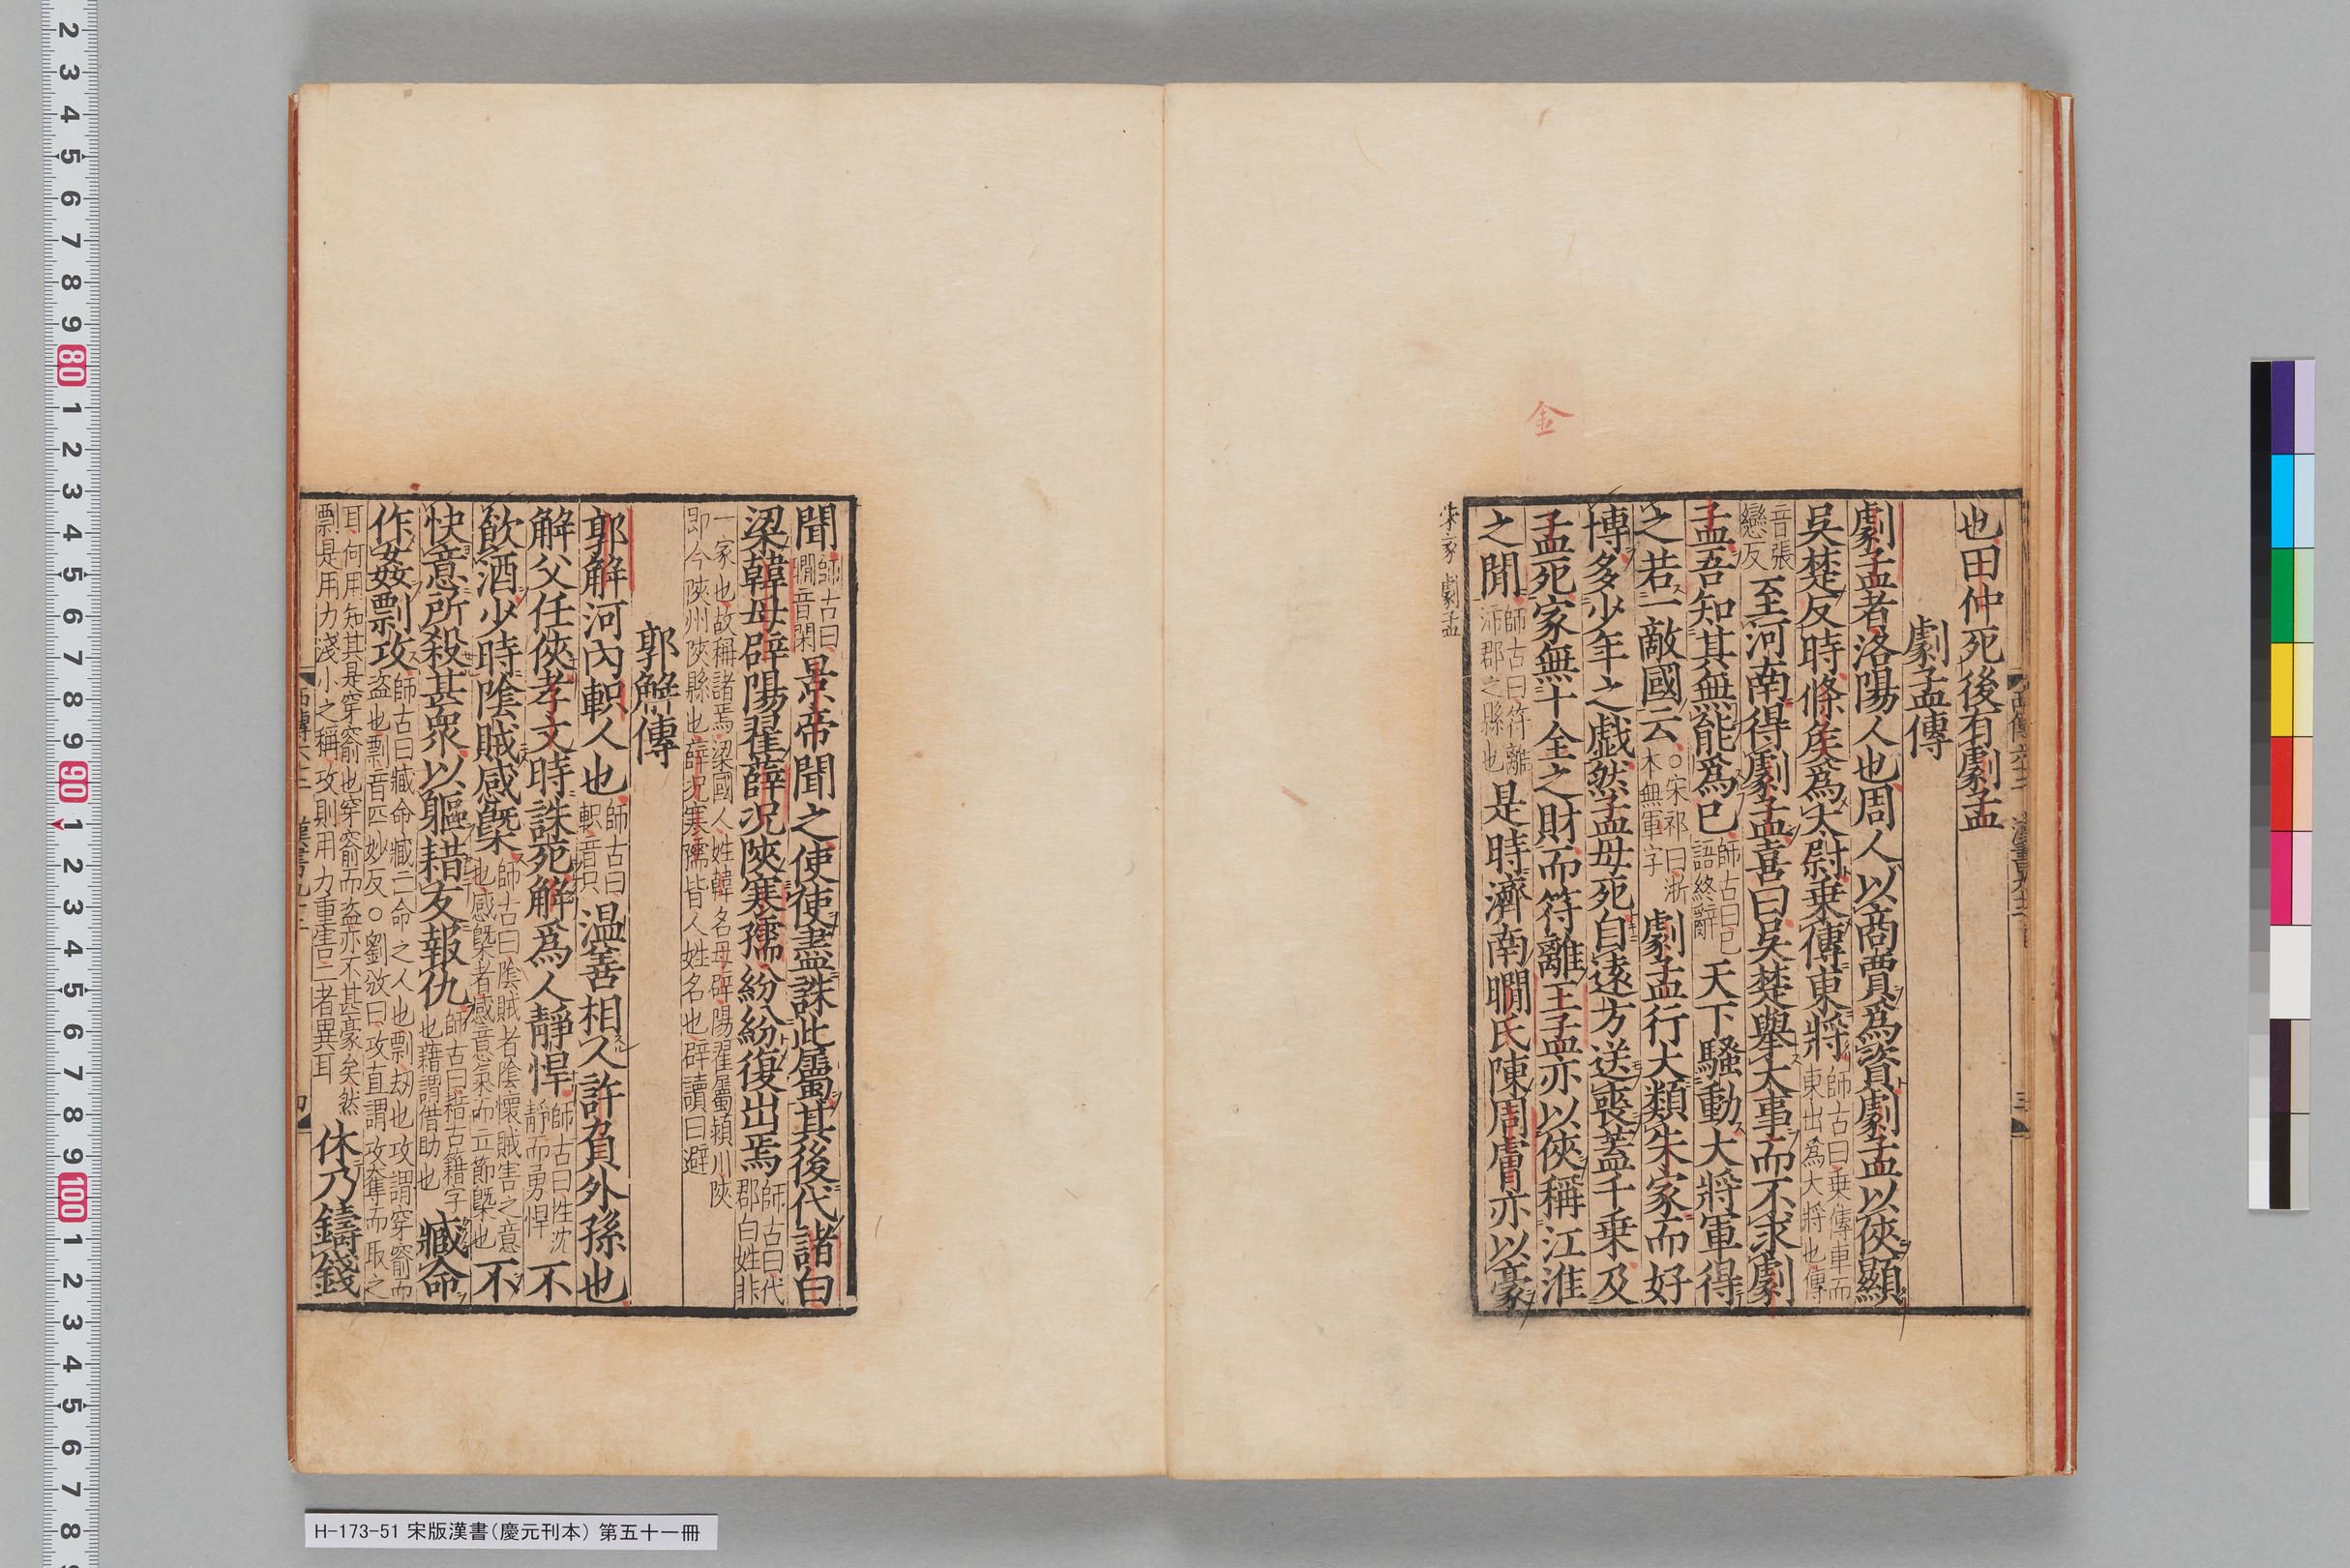 也田仲死後有劇孟
劇孟傳
劇孟者洛陽人也周人以商賈爲資劇孟以俠顯
吳楚反時條侯爲太尉乗傳東將師古曰乗傳車而東出爲大將也傳
音張戀反至河南得劇孟喜曰吳楚舉大事而不求劇
孟吾知其無能爲已師古曰已語終辭天下騷動大將軍得
之若一敵國云○宋祁曰浙本無軍字劇孟行大類朱家而好
博多少年之戯然孟母死自遠方送喪蓋千乗及
孟死家無十金之財而符離王孟亦以俠稱江淮
之閒師古曰符離沛郡之縣也是時濟南瞷氏陳周膚亦以豪
朱家 劇孟
金
聞師古曰瞷音閑景帝聞之使使盡誅此屬其後代諸白
梁韓毋辟陽翟薛况陝寒孺紛紛復出焉師古曰代郡白姓非
一家也故稱諸焉梁國人姓韓名毋辟陽翟屬潁川陝
即今陝州陝縣也薛况寒孺皆人姓名也辟讀曰避
郭解傳
郭解河內軹人也師古曰軹音只溫善相人許負外孫也
解父任俠孝文時誅死解爲人靜悍師古曰性沈靜而勇悍不
飲酒少時陰賊感槩師古曰陰賊者陰懷賊害之意也感槩者感意氣而立節槩也不
快意所殺甚衆以軀耤友報仇師古曰耤古籍字也藉謂借助也臧命
作姦剽攻師古曰臧命臧亡命之人也剽劫也攻謂穿窬而盗也剽音匹妙反○劉攽曰攻直謂攻奪而取之
耳何用知其是穿窬也穿窬而盗亦不甚豪矣然
剽是用力淺小之稱攻則用力重害二者異耳休乃鑄錢
H-173-51 宋版漢書(慶元刊本) 第五十一冊